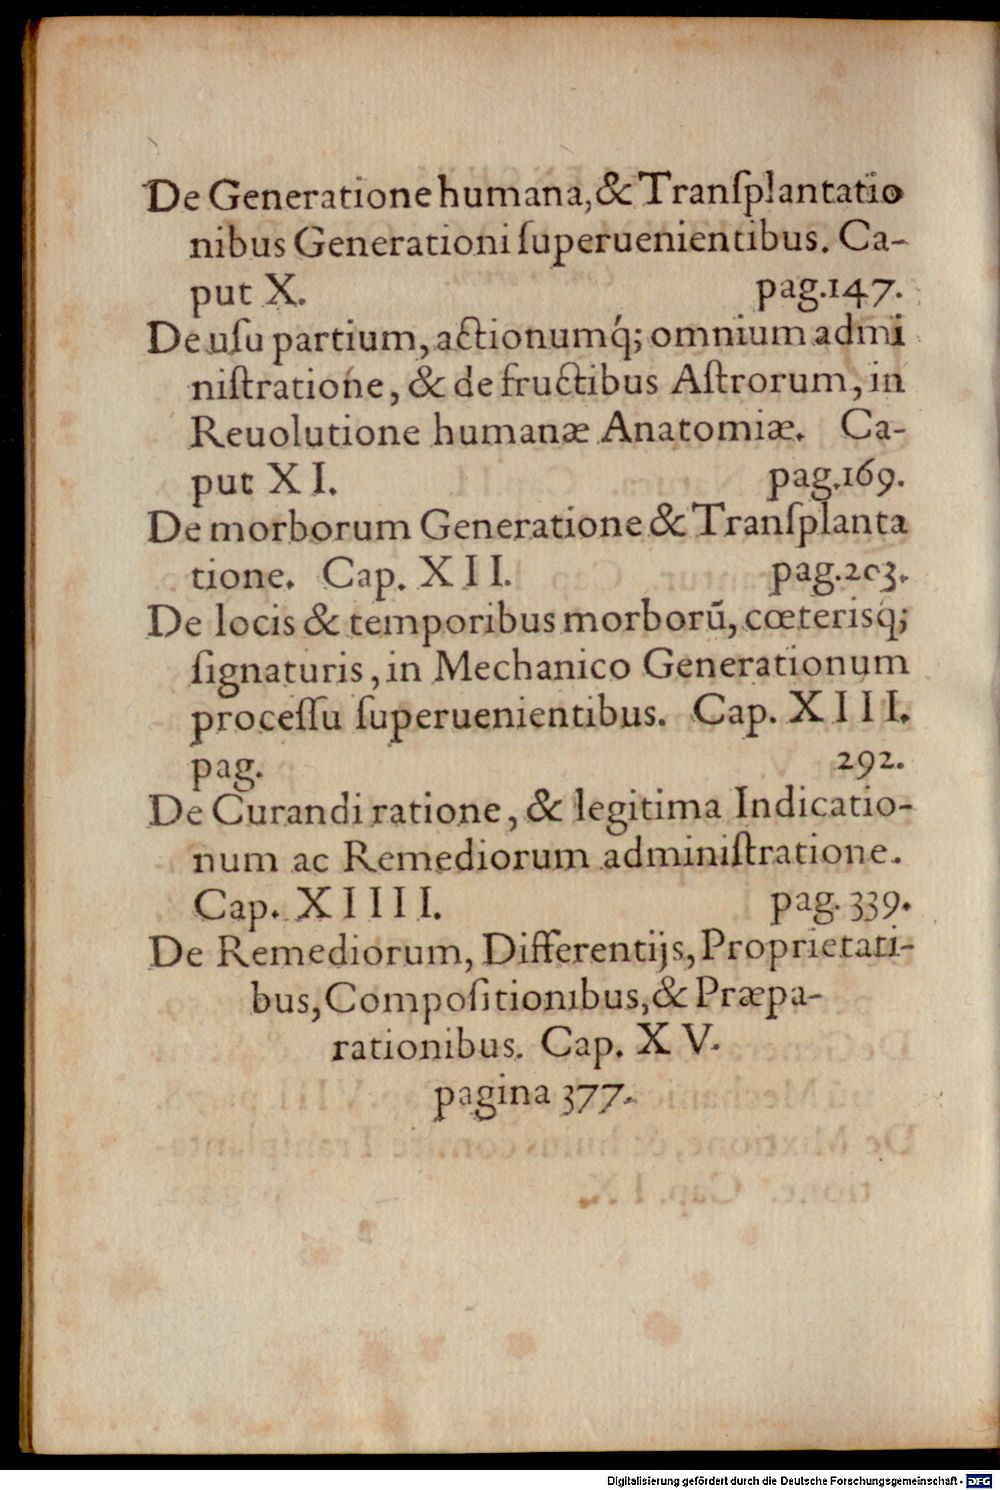 De Generatione humana, & Tranſplantatio
nibus Generationi ſuperuenientibus. Ca-
put X. pag.147.
De uſu partium, actionumq́; omnium admi
niſtratione, & de fructibus Aſtrorum, in
Reuolutione humanæ Anatomiæ. Ca-
put XI. pag.169.
De morborum Generatione & Tranſplanta
tione. Cap. XII. pag.203.
De locis & temporibus morborũ, cœterisq́;
ſignaturis, in Mechanico Generationum
proceſſu ſuperuenientibus. Cap. XIII.
pag. 292.
De Curandi ratione, & legitima Indicatio-
num ac Remediorum adminiſtratione.
Cap. XIIII. pag. 339.
De Remediorum, Differentijs, Proprietati-
bus, Compoſitionibus, & Præpa-
rationibus. Cap. XV.
pagina 377.
Digitalisierung gefördert durch die Deutsche Forschungsgemeinschaft - DFG